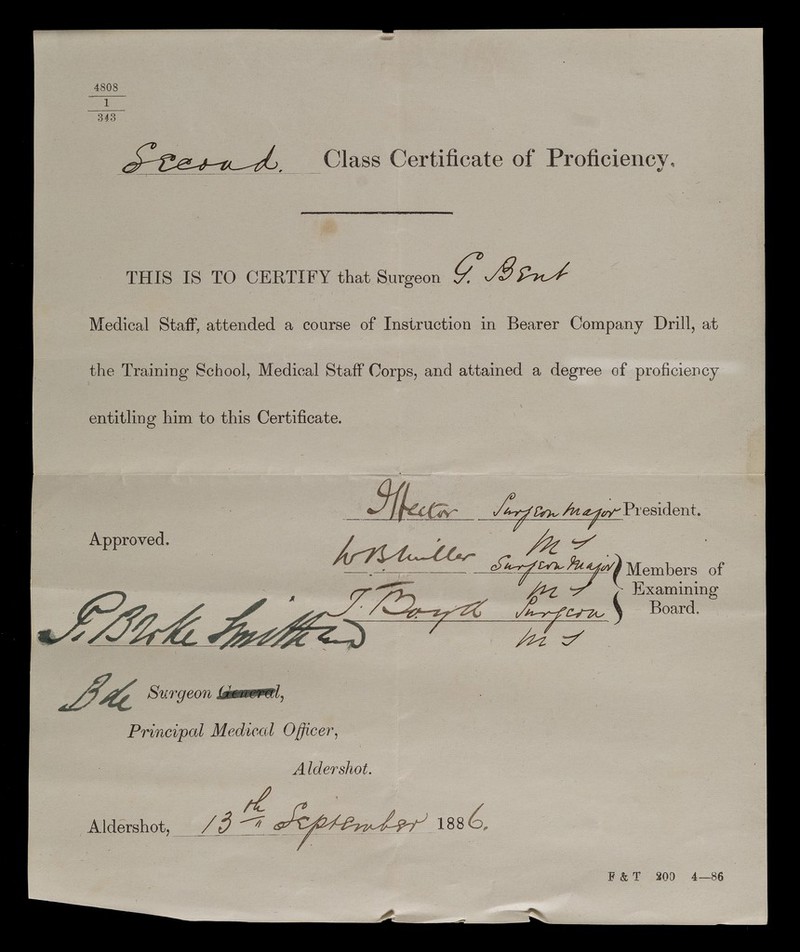 4808
1
343
Second. Class Certificate of Proficiency.
THIS IS TO CERTIFY that Surgeon G. Bent
Medical Staff, attended a course of Instruction in Bearer Company Drill, at
the Training School, Medical Staff Corps, and attained a degree of proficiency
entitling him to this Certificate.
Hector Surgeon Major President.
M S
Approved.
W B Miller Surgeon Major Members of
M S Examining
T. Boyd Surgeon Board.
M S
Bde Surgeon General,
Principal Medical Officer,
Aldershot.
Aldershot, 13th September 1886.
F & T 200 4—86